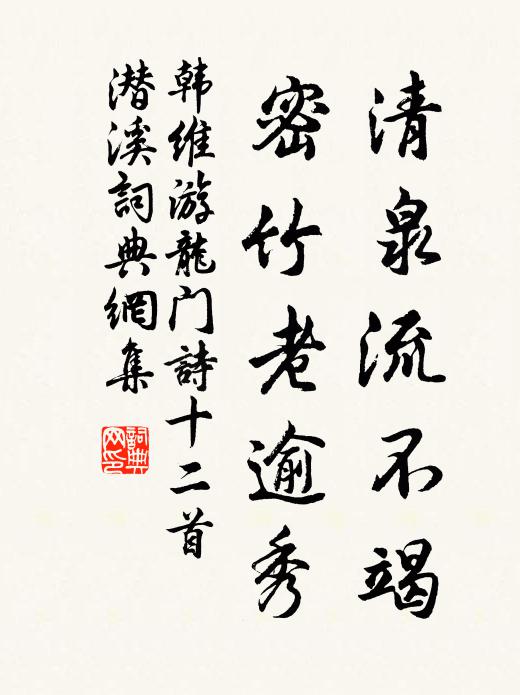 清泉流不竭
密竹老逾秀
韩維游龍门詩十二首
潛溪詞典網集
詞典网印